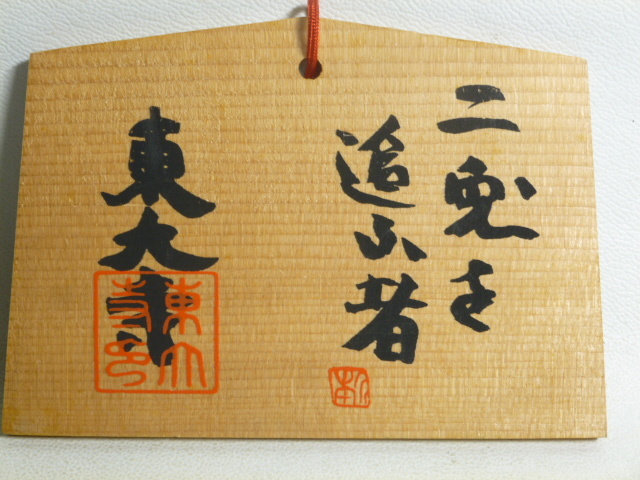 二兎を
追ふ者
東大寺
東大寺印